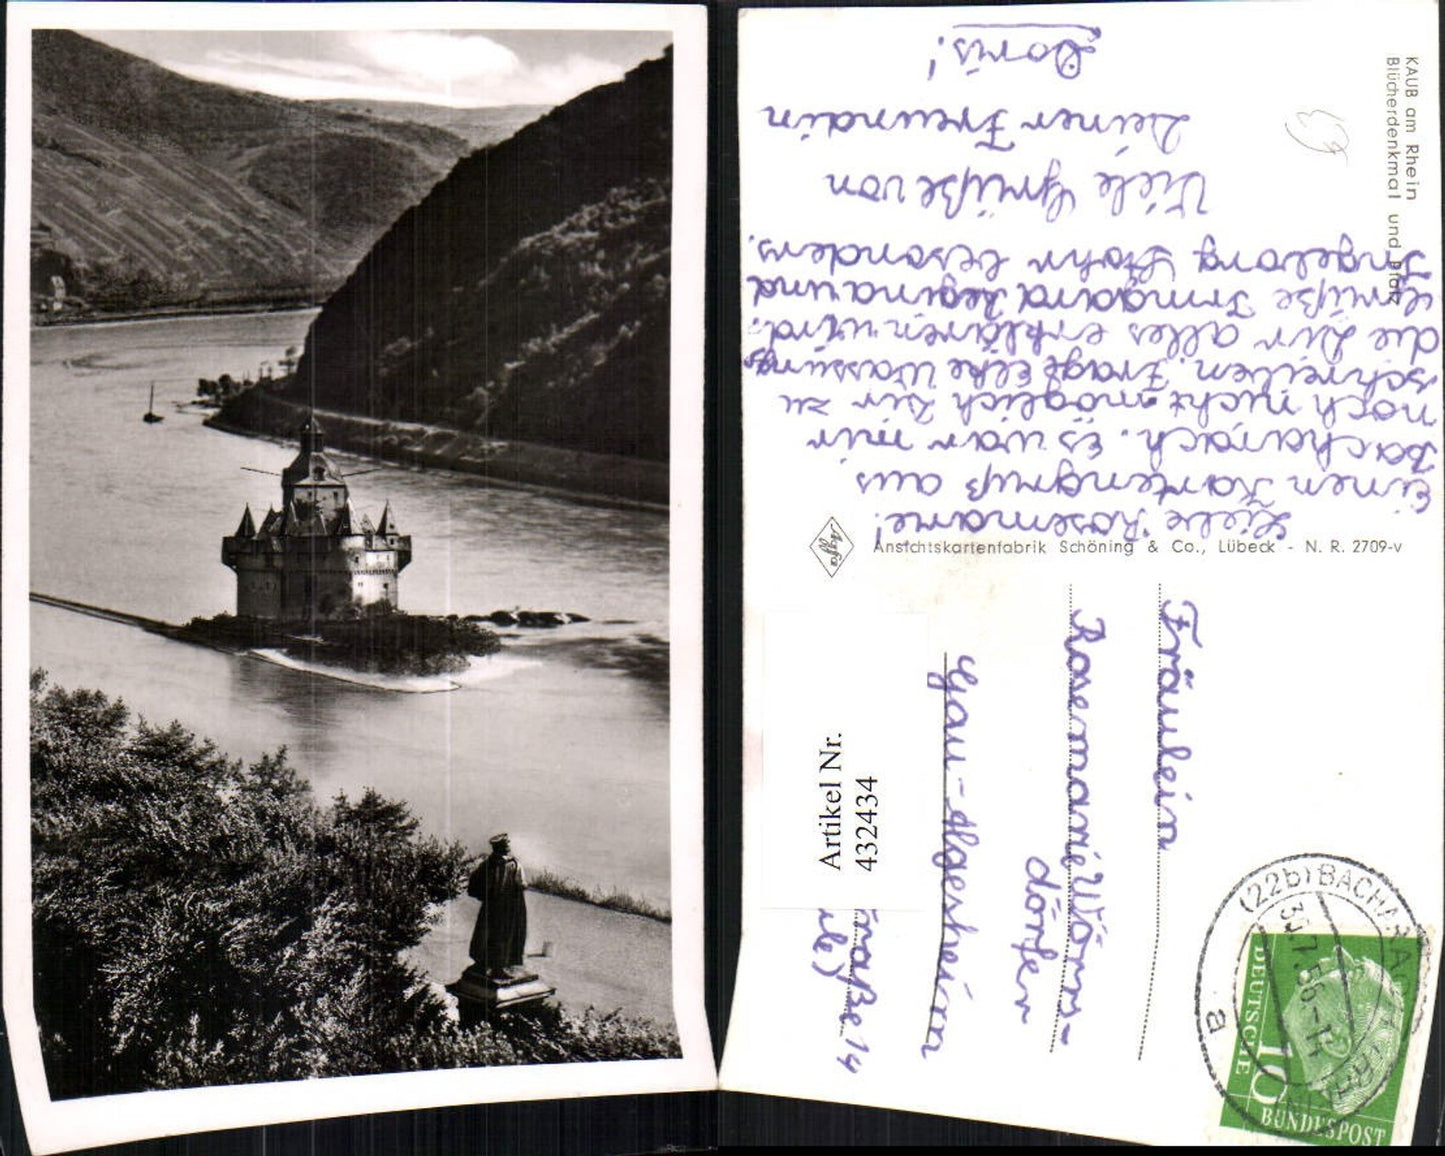 KAUB am Rhein
Blücherdenkmal und Pfalz
Liebe Rosemarie!
Einen Kartengruß aus
Bacharach. Es war mir
noch nicht möglich Dir zu
schreiben. Fragt Elke Wassung,
die Dir alles erklären wird.
Grüße Irmgard Regina und
Ingeborg Stohr besonders.
Viele Grüße von
Deiner Freundin
Doris!
Agfa
Ansichtskartenfabrik Schöning & Co., Lübeck - N. R. 2709-v
Fräulein
Rosemarie Wörns-
dörfer
Gau-Algesheim
14
Artikel Nr.
432434
(22b) BACHARACH
30.7.56-17
a
DEUTSCHE
10
BUNDESPOST